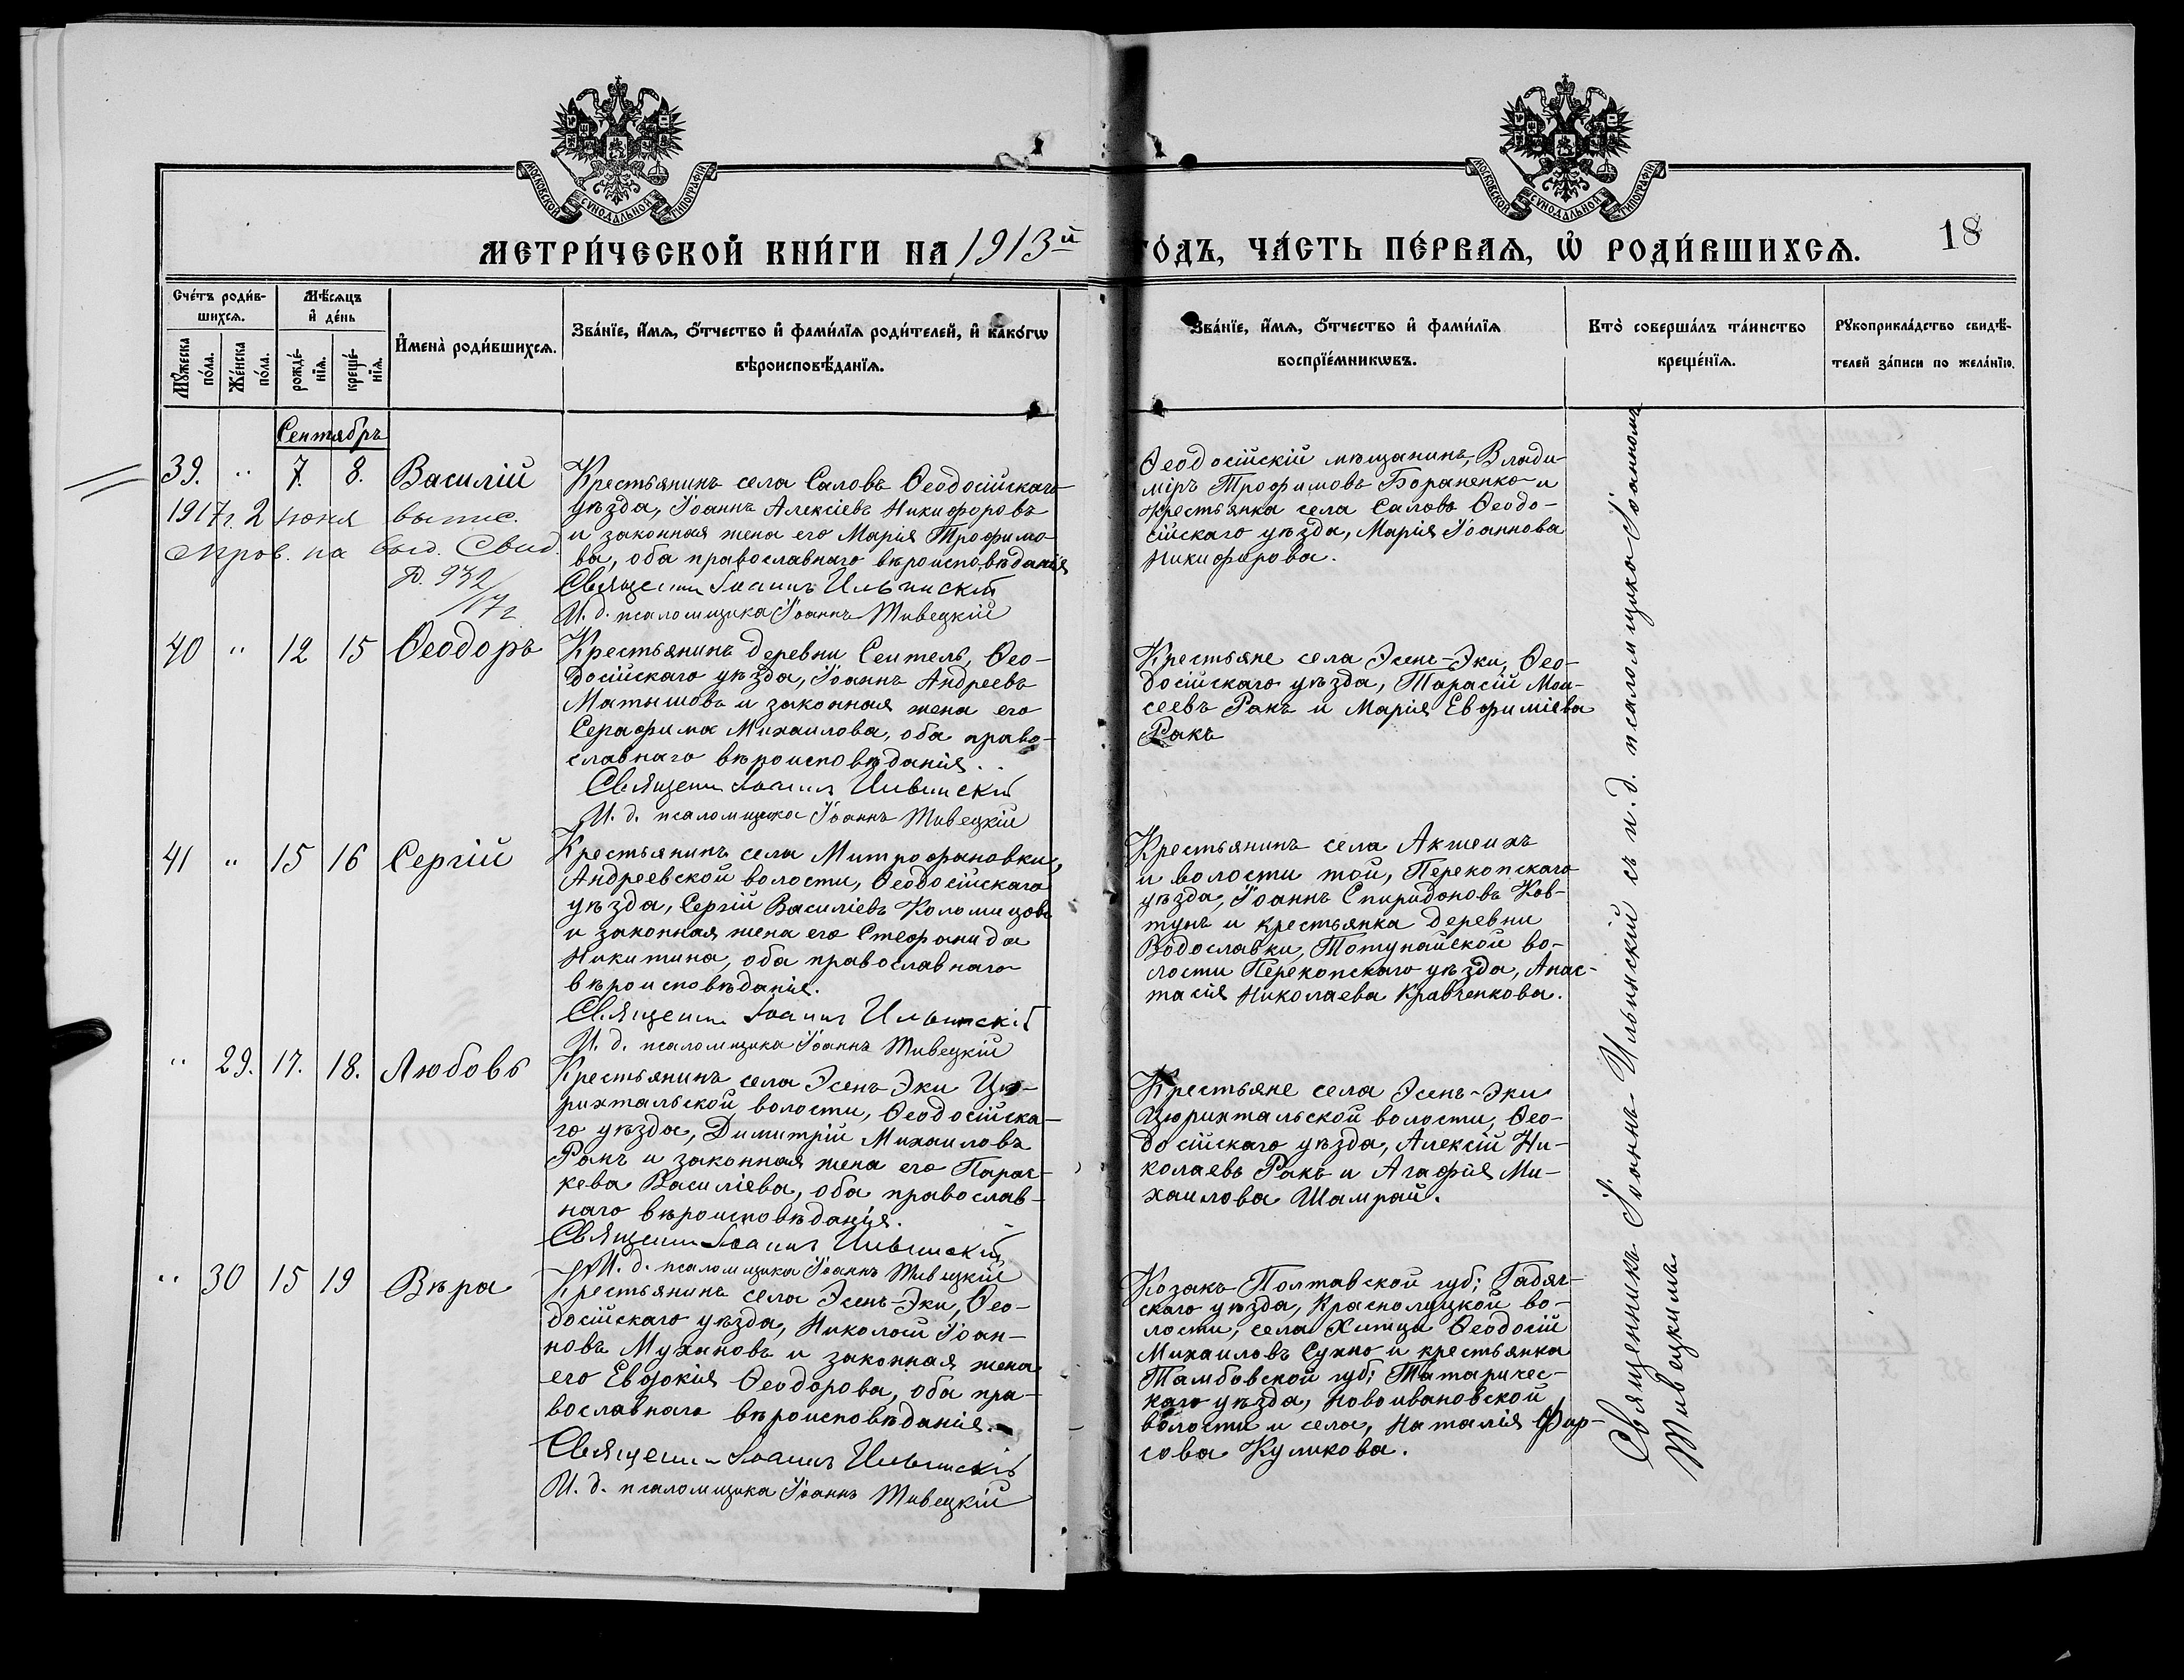 МОСКОВСКОЙ СѴНОДАЛЬНОЙ ТИПОГРАФІИ
МОСКОВСКОЙ СѴНОДАЛЬНОЙ ТИПОГРАФІИ
МЕТРИ́ЧЕСКОЙ КНИ́ГИ НА 1913й
ГО́ДЪ, ЧА́СТЬ ПЕ́РВАѦ, Ѡ҆ РОДИ́ВШИХСѦ.
18
Сче́тъ роди́в-
шихсѧ.
Мѣ́сѧцъ
и҆ де́нь
Мꙋ́жеска
по́ла.
Же́нска
по́ла.
рожде́-
нїѧ.
креще́-
нїѧ.
И҆мена̀ роди́вшихсѧ.
Зва́нїе, и҆́мѧ, ѻ҆́тчество и҆ фами́лїѧ роди́телей, и҆ како́гѡ
вѣроисповѣ́данїѧ.
Зва́нїе, и҆́мѧ, ѻ҆́тчество и҆ фами́лїѧ
воспрїе́мникѡвъ.
Кто̀ соверша́лъ та́инство
креще́нїѧ.
Рꙋкоприкла́дство свидѣ́-
телей за́писи по жела́нїю.
Сентябрь
39. " 7. 8. Василій
1917 г. 2 июня выпис.
мѣров. на выд. Свид.
д. 932/
/17 г
Крестьянинъ села Саловъ Ѳеодосійскаго
уѣзда, Іоаннъ Алексіевъ Никифоровъ
и законная жена его Марія Трофимо
ва, оба православнаго вѣроисповѣданія
Священн Іоаннъ Ильинскій
И. д. псаломщика Іоаннъ Тивецкій
Ѳеодосійскій мѣщанинъ, Влади-
міръ Трофимовъ Бораненко и
крестьянка села Саловъ Ѳеодо-
сійскаго уѣзда, Марія Іоаннова
Никифорова.
40 " 12 15 Ѳеодоръ
Крестьянинъ деревни Сеитель, Ѳео-
досійскаго уѣзда, Іоаннъ Андреевъ
Матышовъ и законная жена его
Серафима Михаилова, оба право-
славнаго вѣроисповѣданія.
Священн Іоаннъ Ильинскій
И. д. псаломщика Іоаннъ Тивецкій
Крестьяне села Эсенъ-Эки, Ѳео-
досійскаго уѣзда, Тарасій Мои-
сеевъ Ракъ и Марія Евфиміева
Ракъ
41 " 15 16 Сергій
Крестьянинъ села Митрофановки,
Андреевской волости, Ѳеодосійскаго
уѣзда, Сергій Василіевъ Коломицовъ
и законная жена его Стефанида
Никитина, оба православнаго
вѣроисповѣданія.
Священн Іоаннъ Ильинскій
И. д. псаломщика Іоаннъ Тивецкій
Крестьянинъ села Акшеихъ
и волости той, Перекопскаго
уѣзда, Іоаннъ Спиридоновъ Ков-
тунъ и крестьянка деревни
Водославки, Тотунайской во-
лости Перекопскаго уѣзда, Анас-
тасія Николаева Кравченкова.
" 29. 17. 18. Любовь
Крестьянинъ села Эсенъ Эки Цю-
рихтальской волости, Ѳеодосійска-
го уѣзда, Димитрій Михаиловъ
Ракъ и законная жена его Парас-
кева Василіева, оба православ-
наго вѣроисповѣданія.
Священн Іоаннъ Ильинскій
И. д. псаломщика Іоаннъ Тивецкій
Крестьяне села Эсенъ-Эки
Цюрихтальской волости, Ѳео-
досійскаго уѣзда, Алексій Ни-
колаевъ Ракъ и Агафія Ми-
хаилова Шамрай.
" 30 15 19 Вѣра
Крестьянинъ села Эсенъ-Эки, Ѳео-
досійскаго уѣзда, Николай Іоан-
новъ Мухановъ и законная жена
его Евдокія Ѳеодорова, оба пра-
вославнаго вѣроисповѣданія.
Священн Іоаннъ Ильинскій
И. д. псаломщика Іоаннъ Тивецкій
Козакъ Полтавской губ; Гадяч-
скаго уѣзда, Краснолуцкой во-
лости, села Хитцы Ѳеодосій
Михаиловъ Сухно и крестьянка
Тамбовской губ; Татаричес-
каго уѣзда, Новоивановской
волости и села, Наталія Фир-
сова Куликова.
Священникъ Іоаннъ Ильинскій съ и. д. псаломщика Іоанномъ
Тивецкимъ